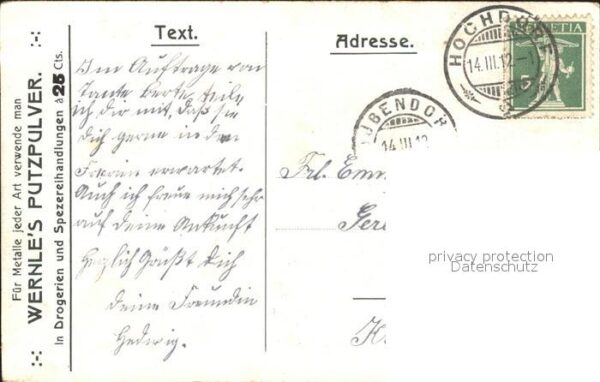 Für Metalle jeder Art verwende man
WERNLE'S PUTZPULVER.
In Drogerien und Spezereihandlungen à 25 Cts.
Text.
Im Auftrage von
Tante Berta teile
ich Dir mit, daß sie
Dich gerne in den
Ferien erwartet.
Auch ich freue mich sehr
auf deine Ankunft
Herzlich Grüßt Dich
deine Freundin
Hedwig.
Adresse.
HOCHDORF
14.III.12.-1
HELVETIA
5
ÜBENDOR
14 III 12
Frl. Em
Ger
K
privacy protection
Datenschutz